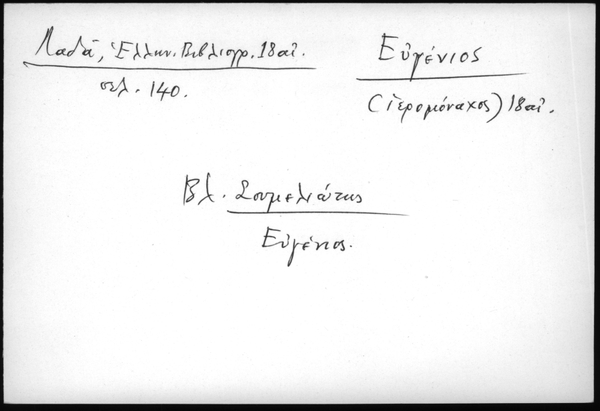 Λαδᾶ, Ἑλλην. Βιβλιογρ. 18 αἰ.
σελ. 140.
Εὐγένιος
(ἱερομόναχος) 18 αἰ.
Βλ. Σουμελιώτης
Εὐγένιος.